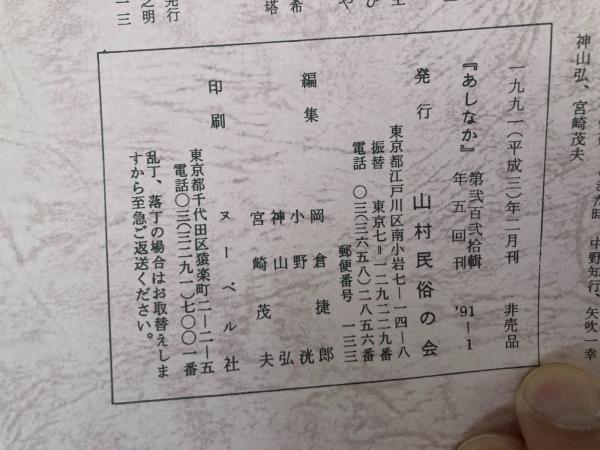 神山弘、宮崎茂夫
中野知行、矢吹一幸
一九九一(平成三)年二月刊 非売品
『あしなか』 第弐百弐拾輯 '91―1
年五回刊
発行 山村民俗の会
東京都江戸川区南小岩七―一四―八
振替 東京七=一二九二二九番
電話 〇三(三六五八)二八五六番
郵便番号 一三三
編集 岡倉捷郎
小野洸
神山弘
宮崎茂夫
印刷 ヌーベル社
東京都千代田区猿楽町二―二―五
電話〇三(三二九一)七〇〇一番
乱丁、落丁の場合はお取替えしま
すから至急ご返送ください。